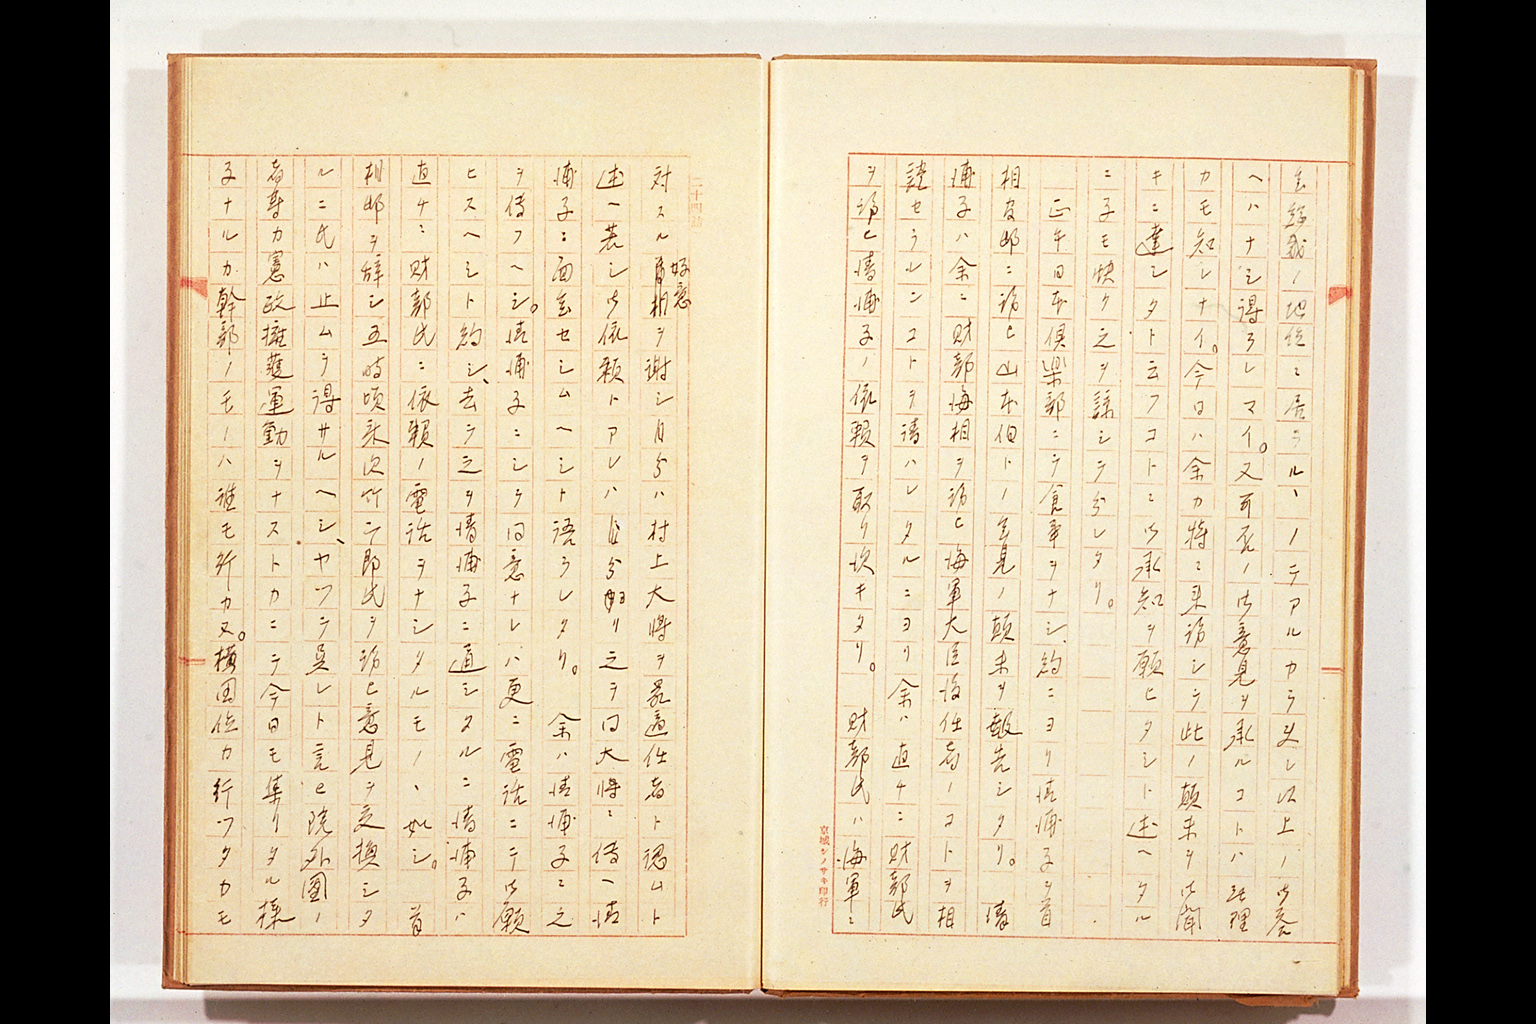 ヘハナシ得ラレマイ。又可否ノ御意見ヲ承ルコトハ無理
カモ知レナイ。今日ハ余カ特ニ来訪シテ此ノ顛末ヲ御聞
キニ達シタト云フコトニ御承知ヲ願ヒタシト述ヘタル
ニ子モ快ク之ヲ諒シテ分レタリ。
正午日本倶楽部ニテ食事ヲナシ、約ニヨリ清浦子ヲ首
相官邸ニ訪ヒ山本伯トノ会見ノ顛末ヲ報告シタリ。清
浦子ハ余ニ財部海相ヲ訪ヒ海軍大臣後任者ノコトヲ相
談セラレンコトヲ請ハレタルニヨリ余ハ直チニ財部氏
ヲ訪ヒ清浦子ノ依頼ヲ取リ次キタリ。財部氏ハ海軍ニ
京城シノサキ印行
対スル首相ヲ謝シ自分ハ村上大将ヲ最適任者ト認ムト
好意
述ヘ若シ御依頼トアレハ自分ヨリ之ヲ同大将ニ伝ヘ清
浦子ニ面会セシムヘシト語ラレタリ。余ハ清浦子ニ之
ヲ伝フヘシ。清浦子ニシテ同意ナレハ更ニ電話ニテ御願
ヒスヘシト約シ、去テ之ヲ清浦子ニ通シタルニ清浦子ハ
直チニ財部氏ニ依頼ノ電話ヲナシタルモノヽ如シ。首
相邸ヲ辞シ五時頃永次竹二郎氏ヲ訪ヒ意見ヲ交換シタ
ルニ氏ハ止ムヲ得サルヘシ、ヤツテ呉レト言ヒ院外団ノ
者等カ憲政擁護運動ヲナストカニテ今日モ集リタル様
子ナルカ幹部ノモノハ誰モ行カヌ。横田位カ行ツタカモ
二十四